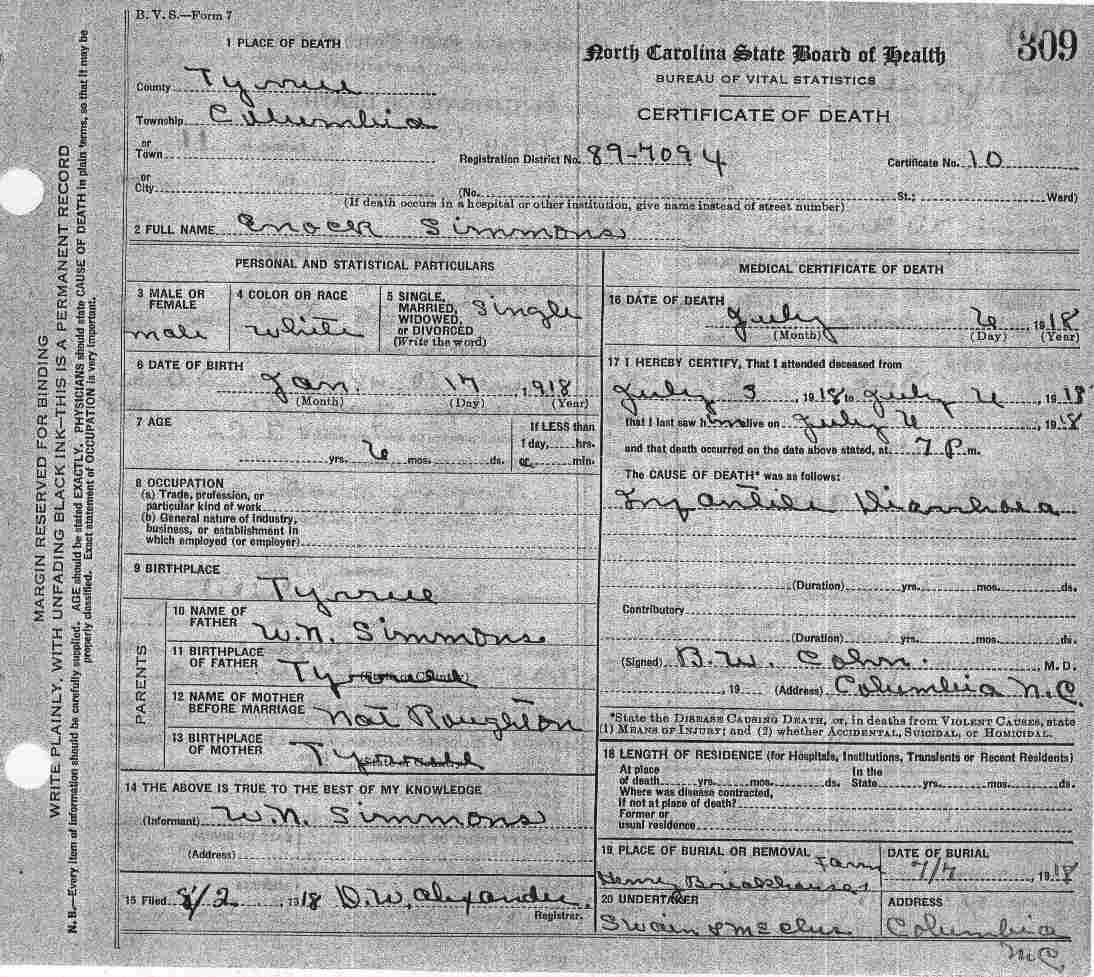 B. V. S.—Form 7
309
1 PLACE OF DEATH
North Carolina State Board of Health
BUREAU OF VITAL STATISTICS
CERTIFICATE OF DEATH
County Tyrrell
Township Columbia
or
Town
Registration District No. 89-7094
Certificate No. 10
or
City
(No. St.; Ward)
(If death occurs in a hospital or other institution, give name instead of street number)
2 FULL NAME Enock Simmons
PERSONAL AND STATISTICAL PARTICULARS
3 MALE OR FEMALE male
4 COLOR OR RACE White
5 SINGLE, MARRIED, WIDOWED, or DIVORCED (Write the word) Single
6 DATE OF BIRTH
Jan. 17, 1918
(Month) (Day) (Year)
7 AGE
If LESS than
1 day, hrs.
yrs. 6 mos. ds. or min.
8 OCCUPATION
(a) Trade, profession, or
particular kind of work
(b) General nature of industry,
business, or establishment in
which employed (or employer)
9 BIRTHPLACE
Tyrrell
PARENTS
10 NAME OF FATHER W. N. Simmons
11 BIRTHPLACE OF FATHER
12 NAME OF MOTHER BEFORE MARRIAGE Nat Roughton
13 BIRTHPLACE OF MOTHER
14 THE ABOVE IS TRUE TO THE BEST OF MY KNOWLEDGE
(Informant) W. N. Simmons
(Address)
15 Filed 8/2, 1918 D. W. Alexander,
Registrar.
MEDICAL CERTIFICATE OF DEATH
16 DATE OF DEATH
July 6 1918
(Month) (Day) (Year)
17 I HEREBY CERTIFY, That I attended deceased from
July 3, 1918 to July 6, 1918
that I last saw him alive on July 6, 1918
and that death occurred on the date above stated, at 7 P. m.
The CAUSE OF DEATH* was as follows:
Infantile Diarrhoea
(Duration) yrs. mos. ds.
Contributory
(Duration) yrs. mos. ds.
(Signed) B. W. Cohn. , M. D.
, 19 (Address) Columbia N.C.
*State the DISEASE CAUSING DEATH, or, in deaths from VIOLENT CAUSES, state
(1) MEANS OF INJURY; and (2) whether ACCIDENTAL, SUICIDAL, or HOMICIDAL.
18 LENGTH OF RESIDENCE (for Hospitals, Institutions, Transients or Recent Residents)
At place of death yrs. mos. ds. In the State yrs. mos. ds.
Where was disease contracted,
If not at place of death?
Former or
usual residence
19 PLACE OF BURIAL OR REMOVAL Farm
Henry
DATE OF BURIAL
7/7, 1918
20 UNDERTAKER
Swain &
ADDRESS
Columbia
N.C.
MARGIN RESERVED FOR BINDING
WRITE PLAINLY, WITH UNFADING BLACK INK—THIS IS A PERMANENT RECORD
N. B.—Every item of information should be carefully supplied. AGE should be stated EXACTLY. PHYSICIANS should state CAUSE OF DEATH in plain terms, so that it may be
properly classified. Exact statement of OCCUPATION is very important.